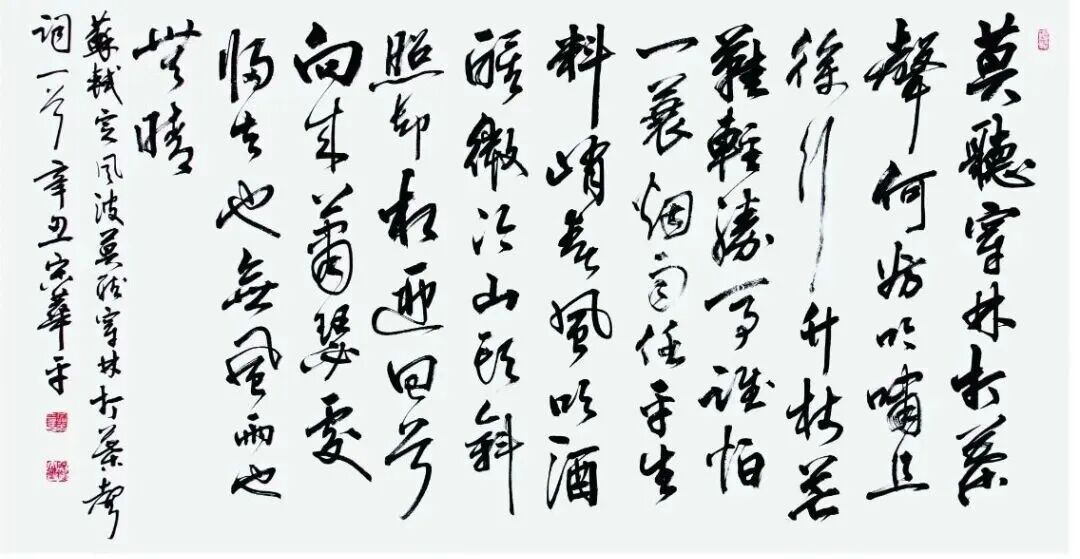 莫聽穿林打葉
聲何妨吟嘯且
徐行竹杖芒
鞋輕勝馬誰怕
一蓑烟雨任平生
料峭春風吹酒
醒微冷山頭斜
照却相迎回首
向來蕭瑟處
歸去也無風雨也
無晴
蘇軾定風波莫聽穿林打葉聲
詞一首 辛丑宋華平